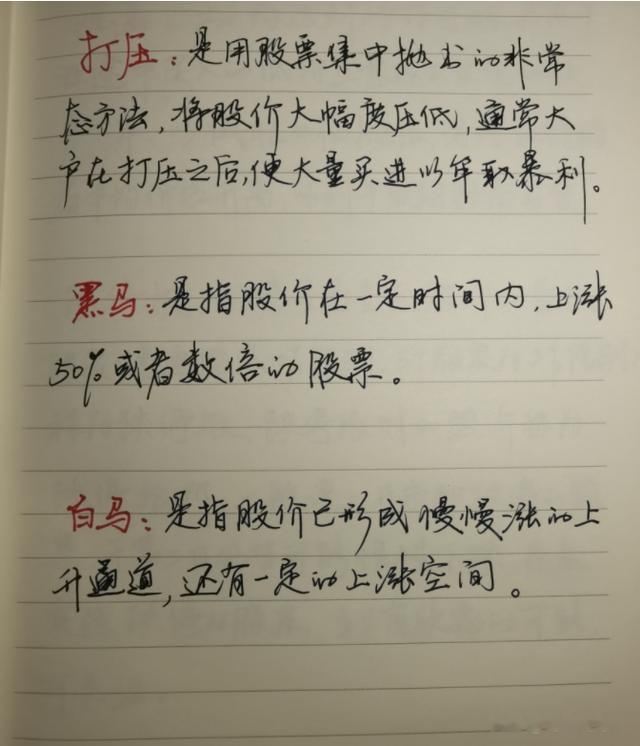 打压：是用股票集中抛出的非常
态方法，将股价大幅度压低，通常大
户在打压之后，便大量买进以牟取暴利。
黑马：是指股价在一定时间内，上涨
50%或者数倍的股票。
白马：是指股价已形成慢慢涨的上
升通道，还有一定的上涨空间。